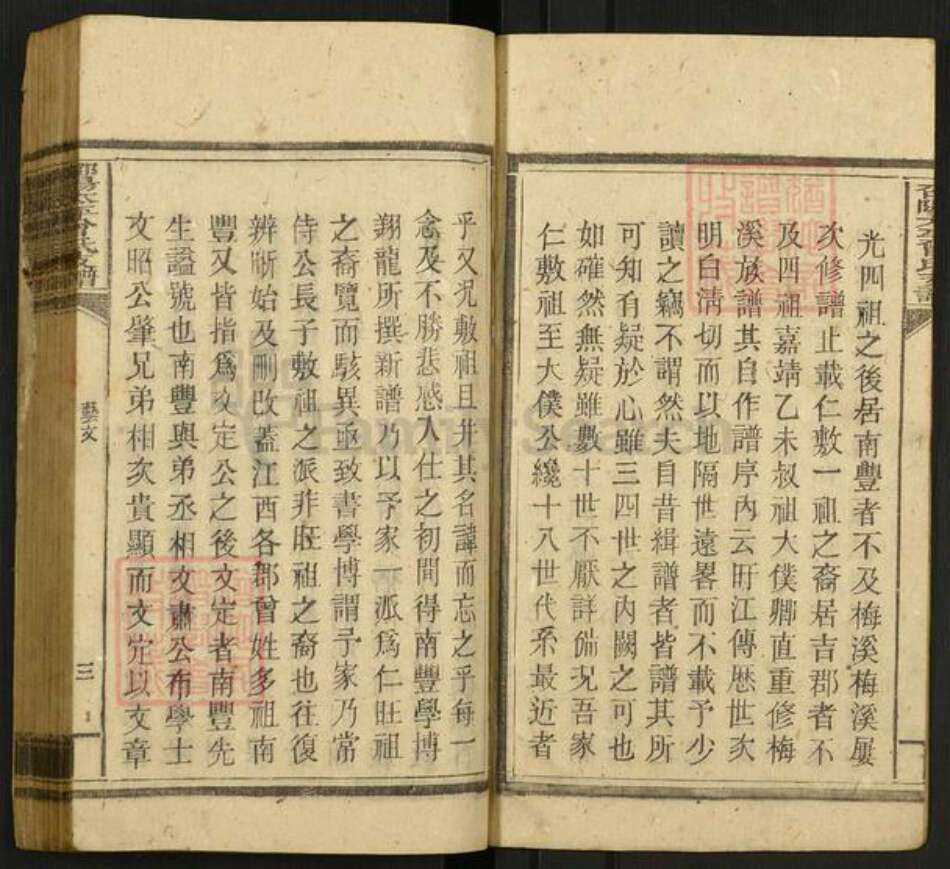 光四祖之後居南豐者不及梅溪梅溪屢
次修譜止載仁敷一祖之裔居吉郡者不
及四祖嘉靖乙未叔祖大僕卿直重修梅
溪族譜其自作譜序內云盱江傳歷世次
明白淸切而以地隔世遠畧而不載予少
讀之竊不謂然夫自昔緝譜者皆譜其所
可知有疑於心雖三四世之內闕之可也
如確然無疑雖數十世不厭詳備况吾家
仁敷祖至大僕公纔十八世代系最近者
乎又况敷祖且并其名諱而忘之乎每一
念及不勝悲感入仕之初間得南豐學博
翔龍所撰新譜乃以予家一派爲仁旺祖
之裔覽而駭異亟致書學博謂予家乃常
侍公長子敷祖之派非旺祖之裔也往復
辨晰始及刪改蓋江西各郡曾姓多祖南
豐又皆指爲文定公之後文定者南豐先
生謚號也南豐與弟丞相文肅公布學士
文昭公肇兄弟相次貴顯而文定以文章
藝文
三